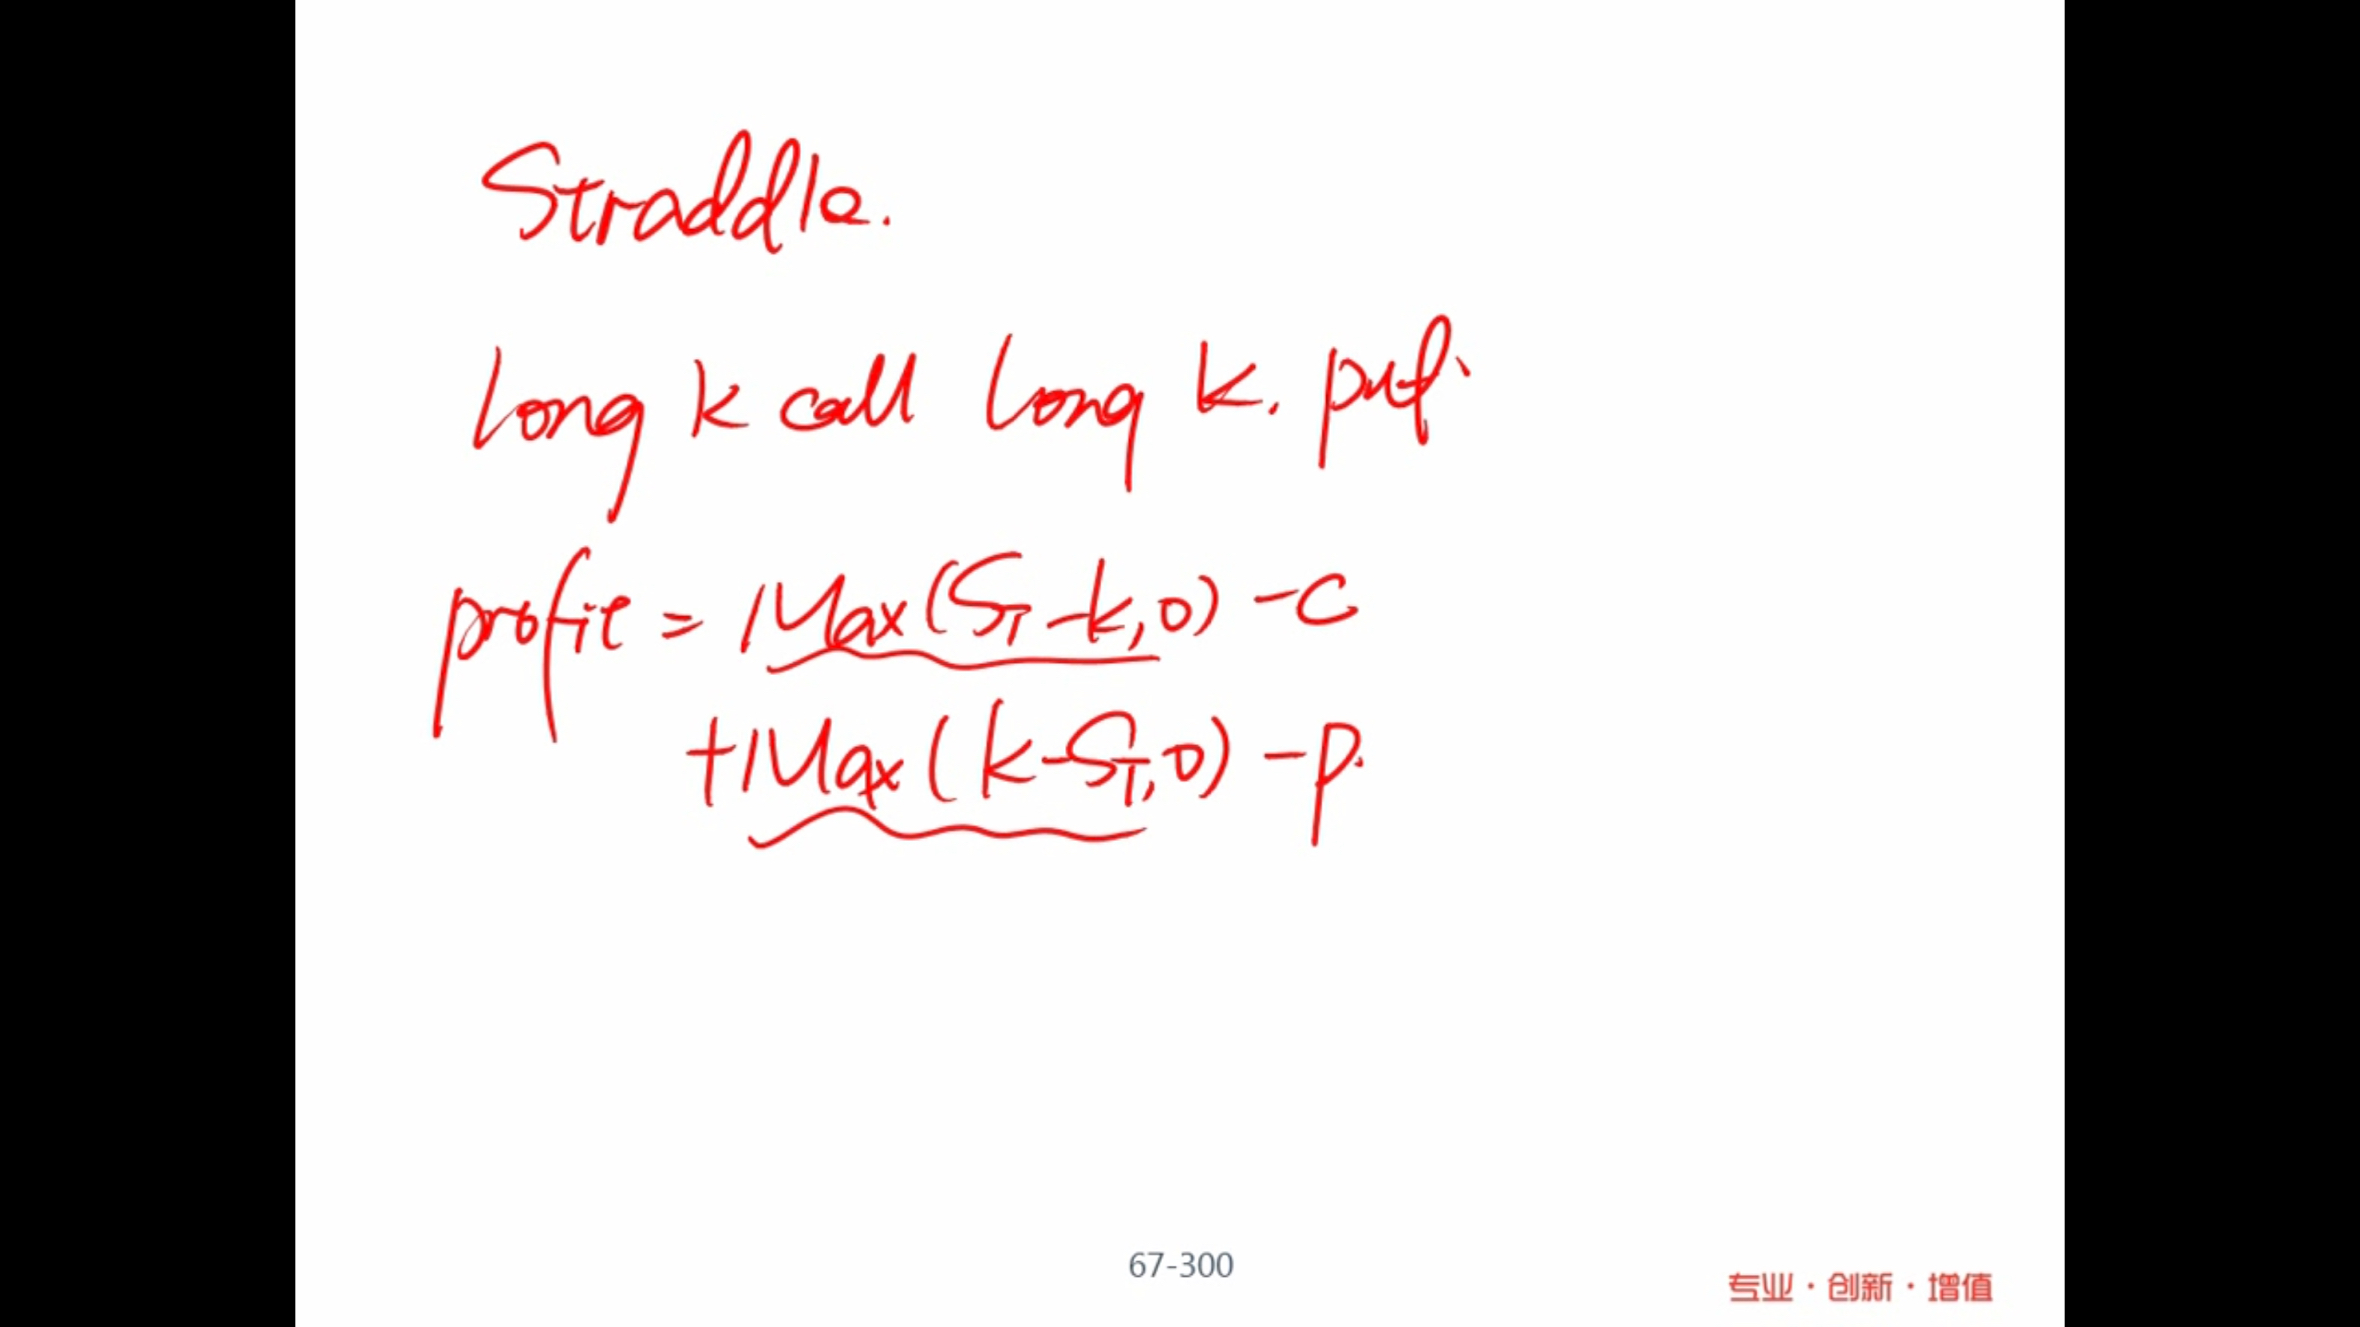 Straddle.
Long k call long k. put.
profit = Max(S_T - k, 0) - c
+ Max(k - S_T, 0) - p.
67-300
专业·创新·增值